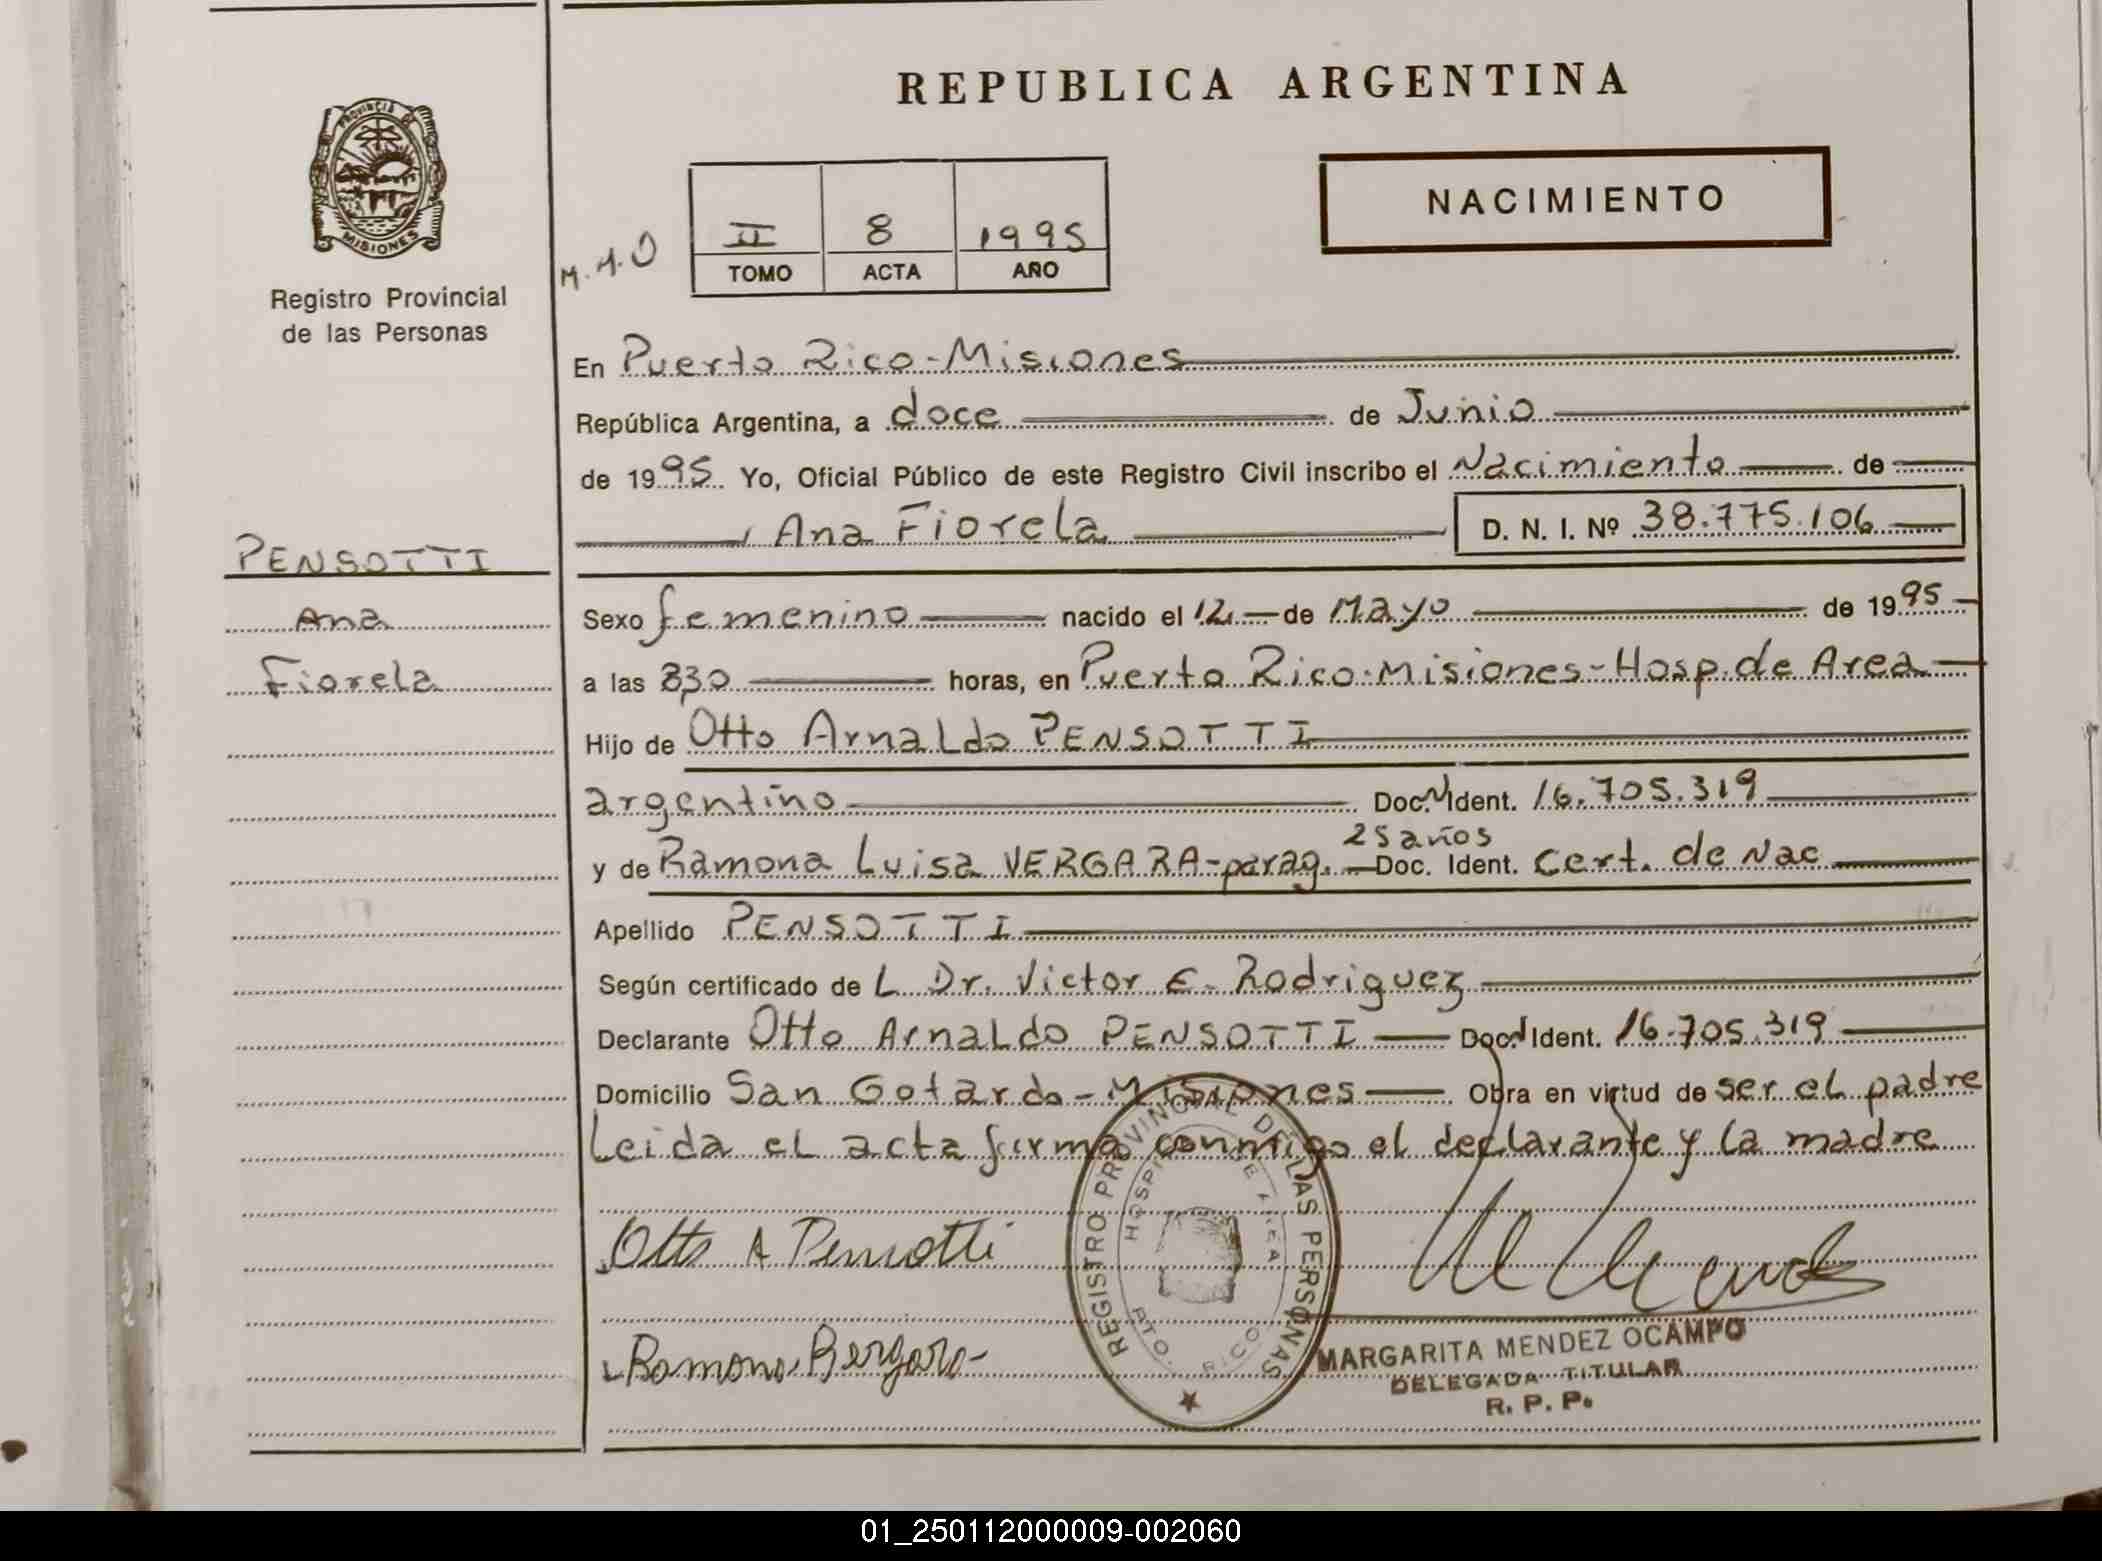 REPUBLICA ARGENTINA
PROVINCIA DE
MISIONES
Registro Provincial
de las Personas
NACIMIENTO
II 8 1995
TOMO ACTA AÑO
En Puerto Rico-Misiones
República Argentina, a doce de Junio
de 1995 Yo, Oficial Público de este Registro Civil inscribo el Nacimiento de
Ana Fiorela D. N. I. Nº 38.775.106
PENSOTTI
Ana
Fiorela
Sexo femenino nacido el 12 de Mayo de 1995
a las 830 horas, en Puerto Rico-Misiones-Hosp. de Area
Hijo de Otto Arnaldo PENSOTTI
argentino Doc. Ident. 16.705.319
25 años
y de Ramona Luisa VERGARA-parag. Doc. Ident. Cert. de Nac
Apellido PENSOTTI
Según certificado de L Dr. Victor E. Rodriguez
Declarante Otto Arnaldo PENSOTTI Doc. Ident. 16.705.319
Domicilio San Gotardo-Misiones Obra en virtud de ser el padre
Leida el acta firma conmigo el declarante y la madre
Otto A Pensotti
Ramona Bergara
REGISTRO PROVINCIAL DE LAS PERSONAS
HOSPITAL DE AREA
PTO. RICO
MARGARITA MENDEZ OCAMPO
DELEGADA TITULAR
R. P. P.
01_250112000009-002060